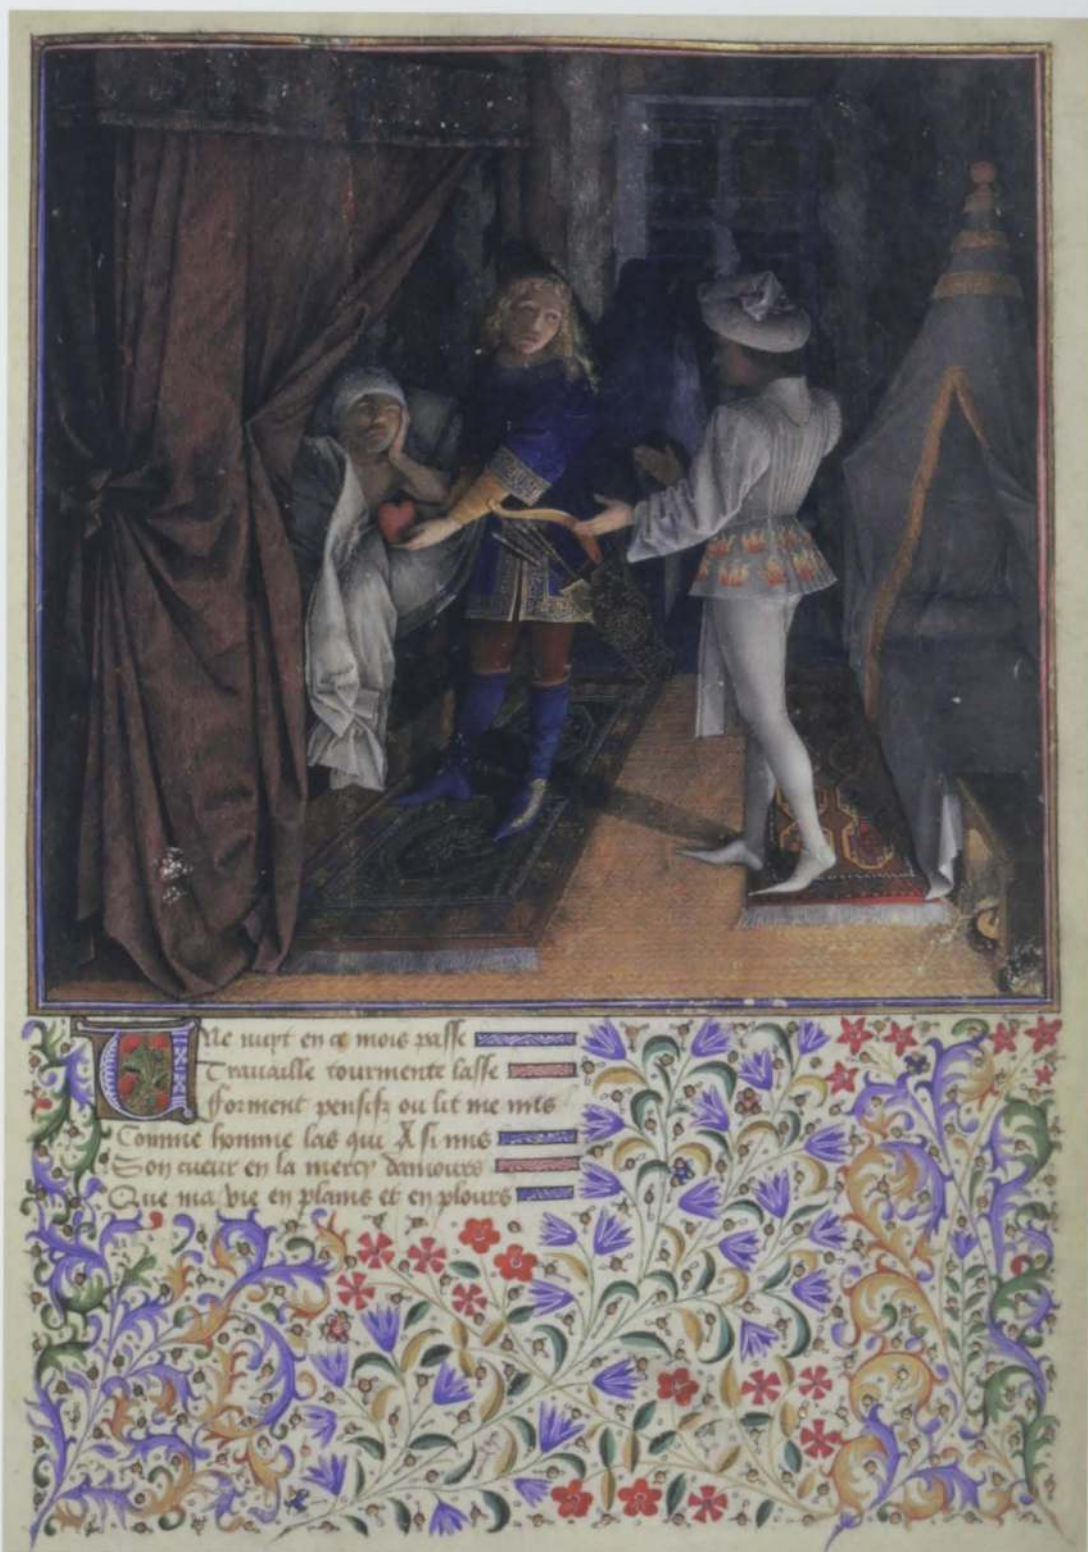 Une nuyt en ce mois passe
Trauaille tourmente lasse
Forment pensifz ou lit me mis
Comme homme las qui A si mis
Son cueur en la mercy damours
Que ma vie en plains et en plours